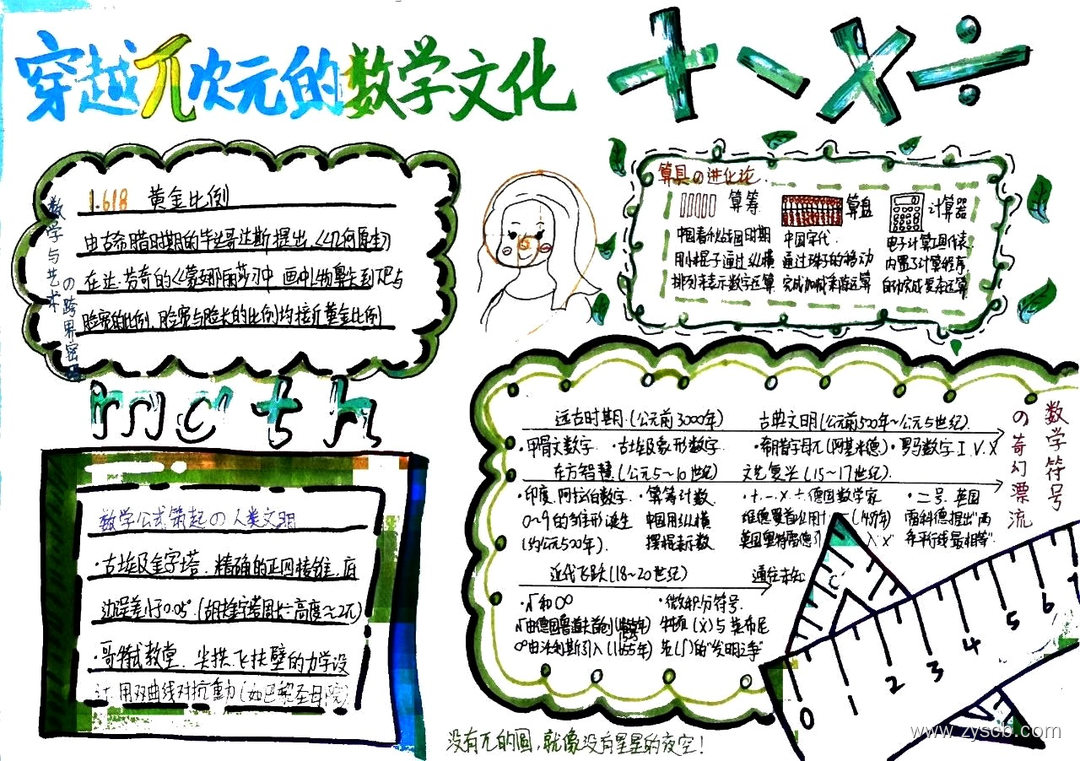 穿越π次元的数学文化
+ - × ÷
数学与艺术の跨界密
1.618 黄金比例
由古希腊时期的毕达哥达斯提出《几何原本》
在达·芬奇的《蒙娜丽莎》中 画中人物鼻尖到下巴与
脸宽的比例、脸宽与脸长的比例均接近黄金比例
算具の进化论
算筹
中国春秋战国时期
用小棍子通过纵横
排列来表示数字运算
算盘
中国宋代
通过珠子的移动
完成加减乘除运算
计算器
电子计算工具代表
内置了计算程序
自动完成复杂运算
math
数学公式筑起の人类文明
·古埃及金字塔、精确的正四棱锥、底
边误差小于0.05°(胡夫金字塔周长÷高度≈2π)
·哥特式教堂、尖拱、飞扶壁的力学设
计,用双曲线对抗重力(如巴黎圣母院)
数学符号の奇幻漂流
远古时期.(公元前3000年) 古典文明(公元前500年~公元5世纪)
·甲骨文数字 ·古埃及象形数字 ·希腊字母π(阿基米德) ·罗马数字I V X
东方智慧.(公元5~10世纪) 文艺复兴(15~17世纪)
·印度、阿拉伯数字 ·算筹计数 ·+.-.×.÷德国数学家 ·二号.英国
0~9的雏形诞生 中国用纵横 维德曼首创用+ -(1489年) 雷科德提出"两
(约公元500年). 摆棍表示数 英国奥特雷德引入"×" 条平行线最相等"
近代飞跃(18~20世纪) 通往未知
·√和∞ ·微积分符号.
√由德国鲁道夫首创(1525年) 牛顿(X)与莱布尼
∞由沃利斯引入(1655年) 兹(∫)的"发明之争"
0 1 2 3 4 5 6 7
没有π的圆,就像没有星星的夜空!
www.zyscb.com